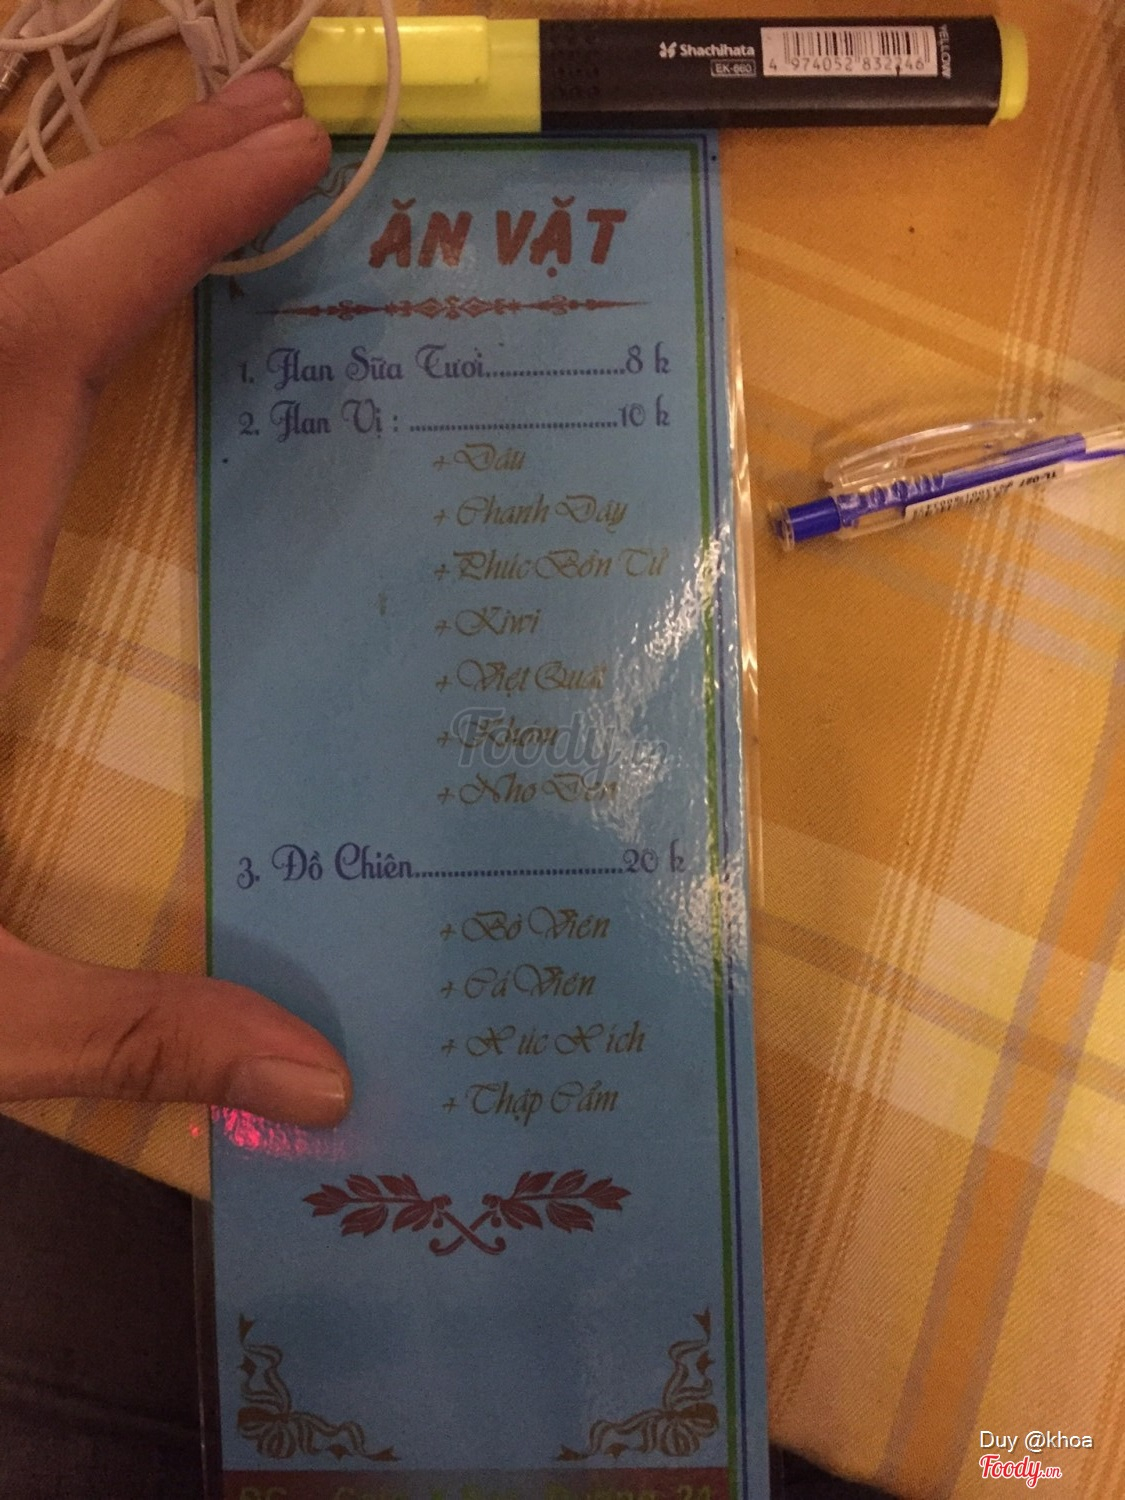 Shachihata
EK-660
4 974052 832246
YELLOW
ĂN VẶT
1. Flan Sữa Tươi.....................8 k
2. Flan Vị : ................................10 k
+ Dâu
+ Chanh Dây
+ Phúc Bồn Tử
+ Kiwi
+ Việt Quất
+ Khóm
+ Nho Đen
3. Đồ Chiên................................20 k
+ Bò Viên
+ Cá Viên
+ Xúc Xích
+ Thập Cẩm
Foody.vn
Duy @khoa
Foody.vn